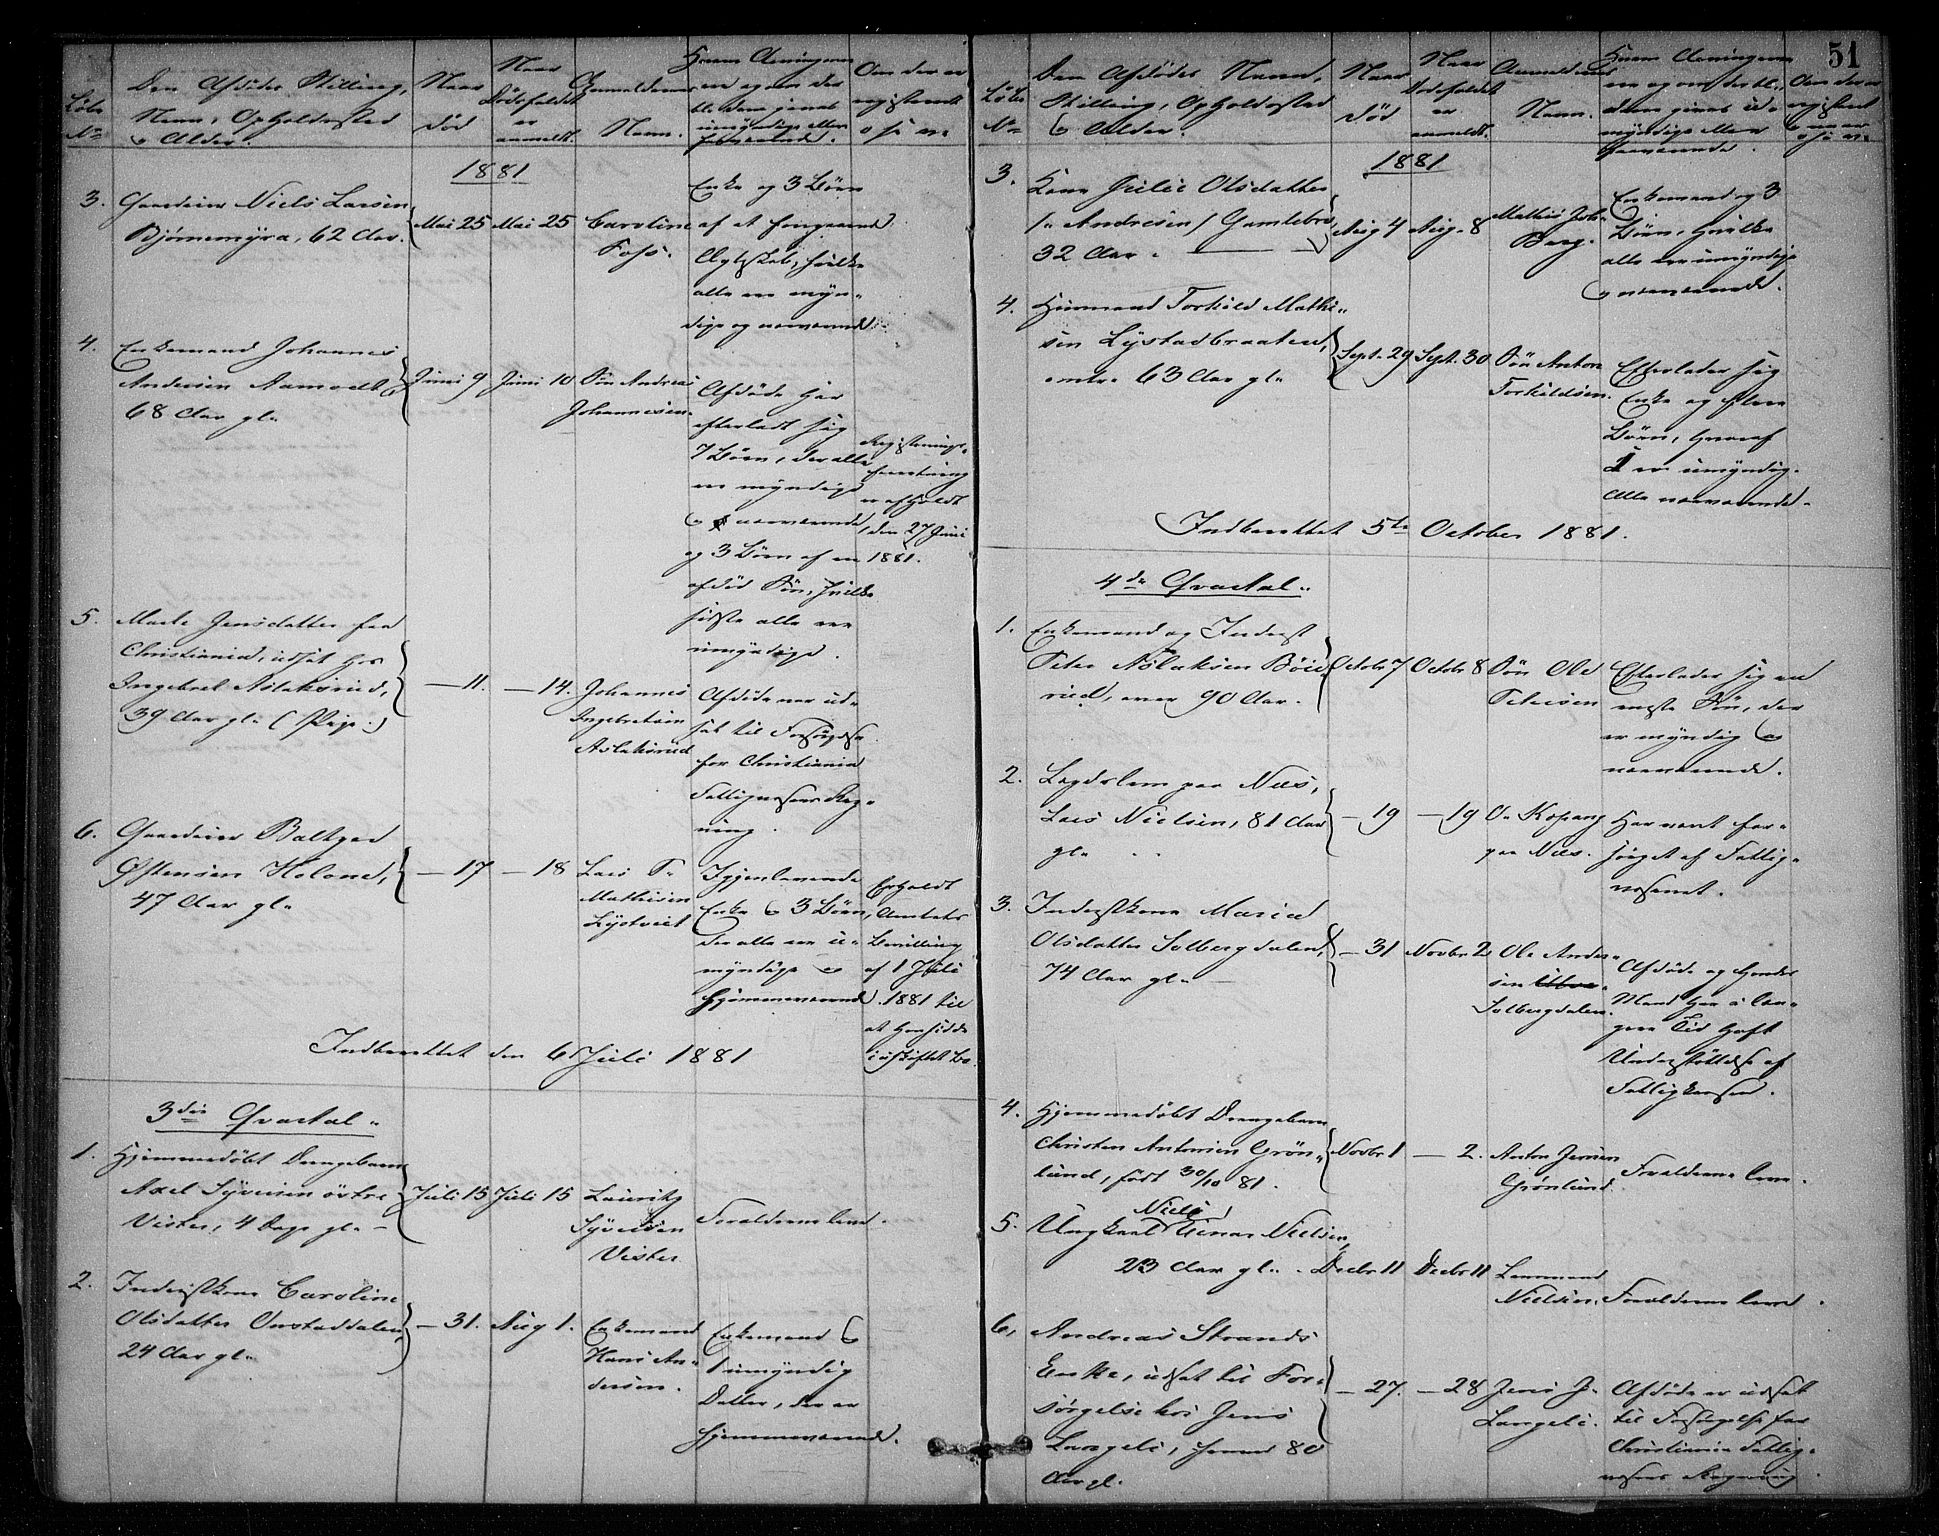 51
Løbe No
Den Afdødes Stilling,
Navn, Opholdssted
& Alder.
Naar
død
Naar
Dødsfaldet
er
anmeldt.
Anmelderens
Navn.
Hvem Arvingerne
ere og om der
blandt dem gives
umyndige eller
fraværende.
Om der er
registreret
1881
3. Gaardeier Niels Larsen
Bjørnemyra, 62 Aar.
Mai 25 Mai 25
Caroline
Foss.
Enke og 3 Børn
af et foregaaende
Ægteskab, hvilke
alle ere myn-
dige og nærværende.
4. Enkemand Johannes
Andersen Aamodt,
68 Aar gl.
Juni 9 Juni 10
Søn Andreas
Johannesen.
Afdøde har
efterladt sig
7 Børn, der alle
ere myndige
& nærværende,
og 3 Børn af en
afdød Søn, hvilke
sidste alle ere
umyndige.
Registrerings-
forretning
er afholdt
den 27 Juni
1881.
5. Marte Jensdatter fra
Christiania, udsat hos
Ingebret Aslaksrud,
39 Aar gl. (Pige.)
— 11. — 14.
Johannes
Ingebretsen
Aslaksrud
Afdøde var ud-
sat til Forsørgelse
for Christiania
Fattigvæsens Reg-
ning.
6. Gaardeier Baltzer
Østensen Holone,
47 Aar gl.
— 17 — 18
Lars T.
Mathisen
Lystveit
Igjenlevende
Enke & 3 Børn,
der alle ere u-
myndige &
hjemmeværende.
Erholdt
Amtets
Bevilling
af 1 Juli
1881 til
at hensidde
i uskiftet Bo.
Indberettet den 6 Juli 1881
3die Qvartal.
1. Hjemmedøbt Drengebarn
Axel Syversen øvre
Vister, 4 Dage gl. —
Juli 15 Juli 15
Lauritz
Syversen
Vister
Forældrene leve.
2. Inderstkone Caroline
Olsdatter Onstaddalen,
24 Aar gl.
— 31. Aug 1.
Enkemand
Hans An-
dersen.
Enkemand &
1 umyndig
Datter, der er
hjemmeværende.
Løbe No
Den Afdødes Navn,
Stilling, Opholdssted
& Alder.
Naar
død
Naar
Dødsfaldet
er
anmeldt.
Anmelderens
Navn.
Hvem Arvingerne
ere og om der bl.
dem gives u-
myndige eller
fraværende.
1881
3. Kone Julie Olsdatter
/ Andresen / Gamlebro,
32 Aar.
Aug 4 Aug. 8
Mathis Joh.
Berg.
Enkemand og 3
Børn, hvilke
alle ere umyndige
& nærværende.
4. Husmand Torkild Mathi-
sen Lystadbraaten,
omtr. 63 Aar gl.
Sept. 29 Sept. 30
Søn Anton
Torkildsen.
Efterlader sig
Enke og flere
Børn, hvoraf
1 er umyndig.
Alle nærværende.
Indberettet 5te October 1881.
4de Qvartal.
1. Enkemand og Inderst
Peter Aslaksen Böie-
rud, over 90 Aar.
Octobr 7 Octobr 8
Søn Ole
Petersen
Efterlader sig en
eneste Søn, der
er myndig &
nærværende.
2. Lægdslem paa Næs,
Lars Nielsen, 81 Aar
gl.
— 19 — 19
O. Kopang
paa Næs.
Har været for-
sørget af Fattig-
væsenet.
3. Inderstkone Maria
Olsdatter Solbergdalen,
74 Aar gl.
— 31 Novbr 2
Ole Ander-
sen
Solbergdalen.
Afdøde og hendes
Mand har i læn-
gere Tid havt
Understøttelse af
Fattigkassen.
4. Hjemmedøbt Drengebarn
Christen Antonsen Grøn-
lund, født 30/10 81.
Novbr 1 — 2.
Anton Jensen
Grønlund.
Forældrene leve.
Niels
5. Ungkarl Einar Nielsen,
23 Aar gl.
Decbr 11 Decbr 11
Lensmand
Nielsen.
Forældrene leve.
6. Andreas Strands
Enke, udsat til For-
sørgelse hos Jens
Langeli, henved 80
Aar gl.
— 27. — 28
Jens J.
Langeli.
Afdøde er udsat
til Forsørgelse for
Christiania Fattig-
væsens Regning.